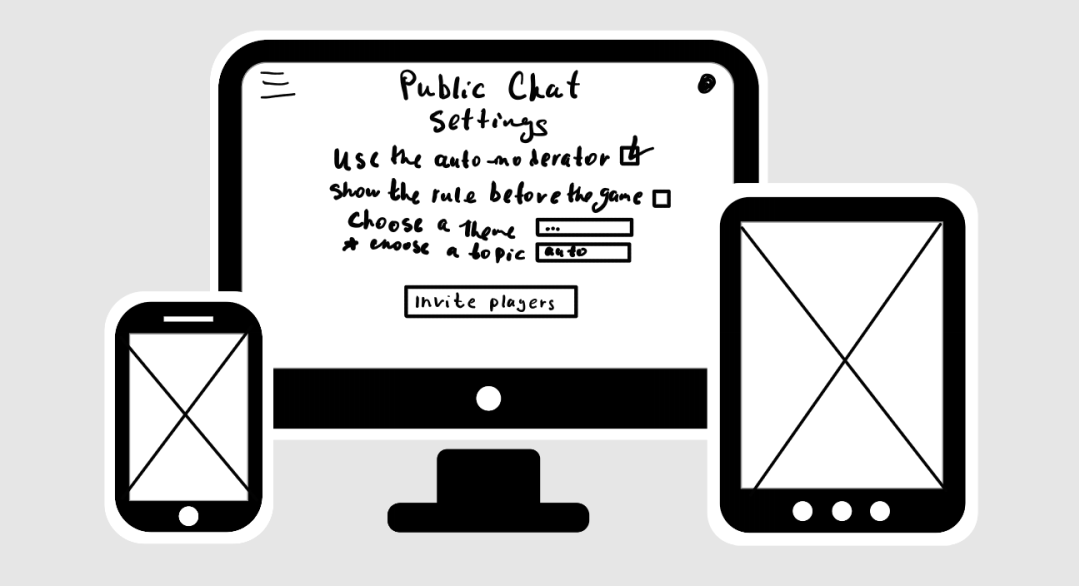 Public Chat
Settings
Use the auto-moderator
Show the rule before the game
Choose a Theme ...
* choose a topic auto
Invite players